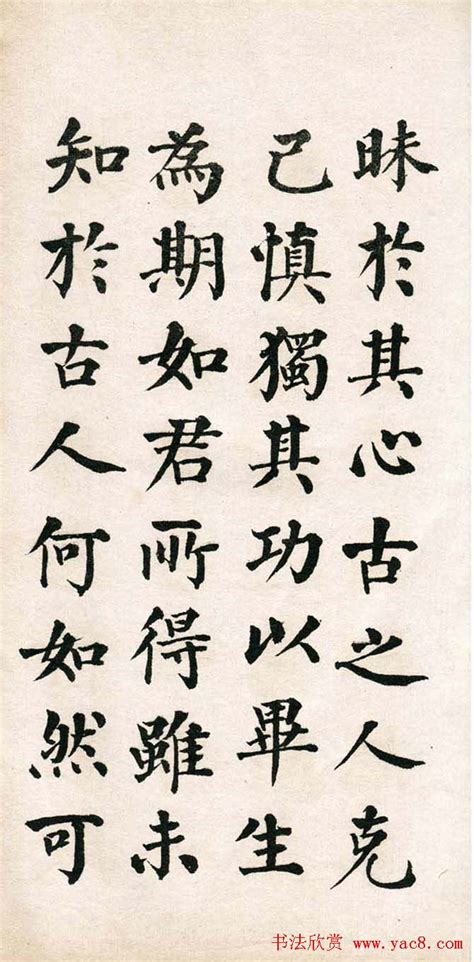 昧於其心古之人克
己慎獨其功以畢生
為期如君所得雖未
知於古人何如然可
书法欣赏 www.yac8.com